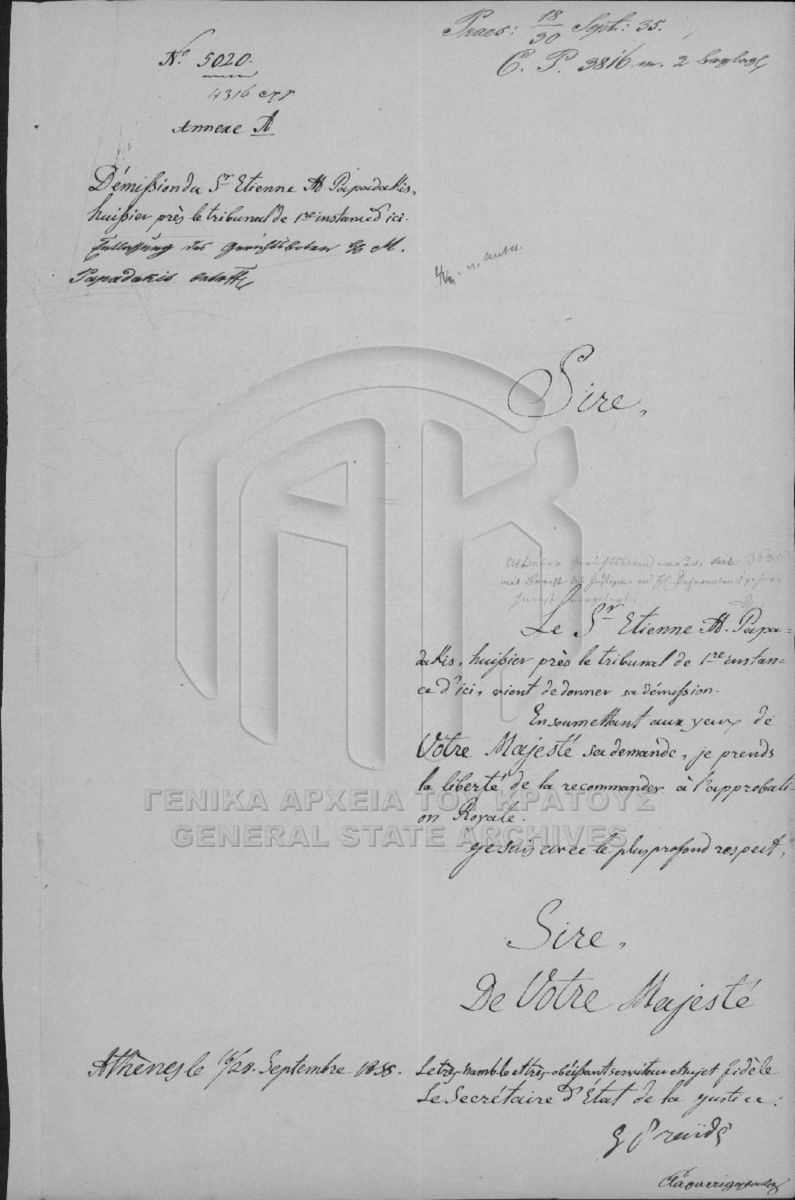 Praes: 18/30 Sept: 35.
C. P. 3816 m. 2
N.º 5020.
4316
Annexe A
Démission du Sr Etienne M Papadakis,
huissier près le tribunal de 1re instance d'ici.
Entlassung des Gerichtsboten M.
Papadakis betreff
Sire,
Le Sr Etienne M. Papa-
dakis, huissier près le tribunal de 1re instan-
ce d'ici, vient de donner sa démission.
En soumettant aux yeux de
Votre Majesté sa demande, je prends
la liberté de la recommander à l'approbati-
on Royale.
Je suis avec le plus profond respect,
Sire,
De Votre Majesté
Athènes le 16/28 Septembre 1835.
Le très-humble et très-obéissant serviteur et sujet fidèle
Le Secrétaire d'État de la Justice:
G Praïdis
ΓΕΝΙΚΑ ΑΡΧΕΙΑ ΤΟΥ ΚΡΑΤΟΥΣ
GENERAL STATE ARCHIVES